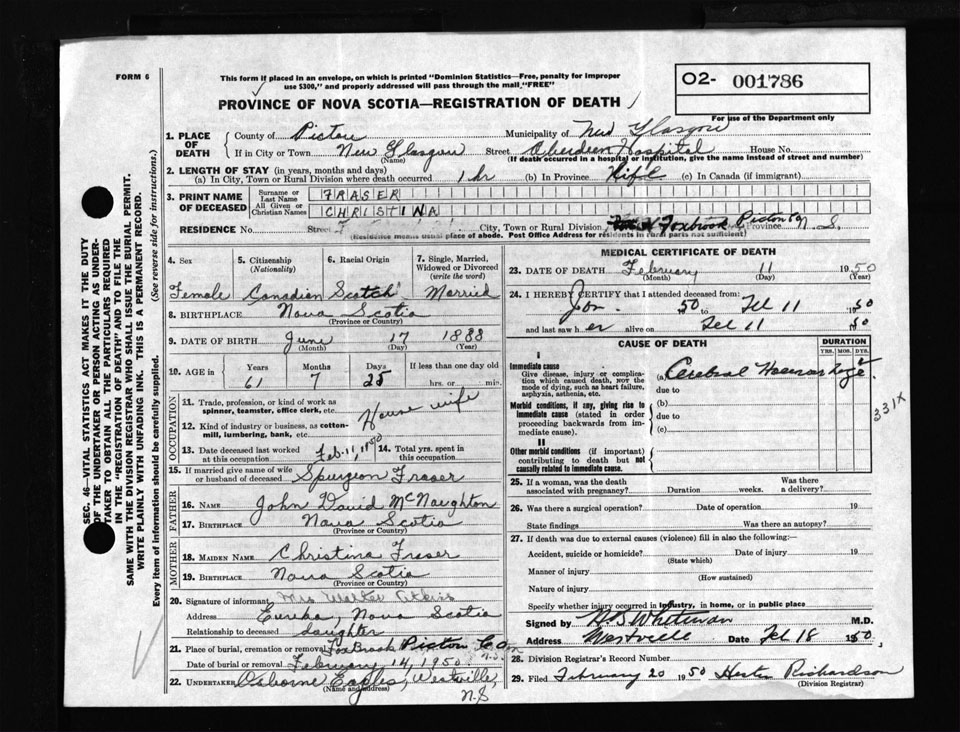 FORM 6
This form if placed in an envelope, on which is printed "Dominion Statistics—Free, penalty for improper
use $300," and properly addressed will pass through the mail "FREE"
O2- 001786
For use of the Department only
PROVINCE OF NOVA SCOTIA—REGISTRATION OF DEATH
1. PLACE OF DEATH County of Pictou Municipality of New Glasgow
If in City or Town New Glasgow (Name) Street Aberdeen Hospital House No.
(If death occurred in a hospital or institution, give the name instead of street and number)
2. LENGTH OF STAY (in years, months and days)
(a) In City, Town or Rural Division where death occurred 1 hr (b) In Province Life (c) In Canada (if immigrant)
3. PRINT NAME OF DECEASED Surname or Last Name FRASER
All Given or Christian Names CHRISTINA
RESIDENCE No. Street City, Town or Rural Division Foxbrook Pictou Co Province N. S.
(Residence means usual place of abode. Post Office Address for residents in rural parts not sufficient)
4. Sex 5. Citizenship (Nationality) 6. Racial Origin 7. Single, Married, Widowed or Divorced (write the word)
Female Canadian Scotch Married
8. BIRTHPLACE Nova Scotia
(Province or Country)
9. DATE OF BIRTH June 17 1888
(Month) (Day) (Year)
10. AGE in Years Months Days If less than one day old
61 7 25 hrs. or min.
OCCUPATION
11. Trade, profession, or kind of work as spinner, teamster, office clerk, etc. House wife
12. Kind of industry or business, as cotton-mill, lumbering, bank, etc.
13. Date deceased last worked at this occupation Feb. 11, 1950 14. Total yrs. spent in this occupation
15. If married give name of wife or husband of deceased Spurgeon Fraser
FATHER
16. NAME John David McNaughton
17. BIRTHPLACE Nova Scotia
(Province or Country)
MOTHER
18. MAIDEN NAME Christina Fraser
19. BIRTHPLACE Nova Scotia
(Province or Country)
20. Signature of informant Mrs Walter
Address Eureka, Nova Scotia
Relationship to deceased daughter
21. Place of burial, cremation or removal Fox Brook Pictou Co N.S.
Date of burial or removal February 14, 1950.
22. Undertaker Osborne Eagles, Westville, N.S
(Name and address)
MEDICAL CERTIFICATE OF DEATH
23. DATE OF DEATH February 11 1950
(Month) (Day) (Year)
24. I HEREBY CERTIFY that I attended deceased from:
Jan. 1950 to Feb 11 1950
and last saw her alive on Feb 11 1950
CAUSE OF DEATH DURATION
YRS. MOS. DYS.
I
Immediate cause
Give disease, injury or complication which caused death, not the mode of dying, such as heart failure, asphyxia, asthenia, etc.
(a) Cerebral Haemorrhage
due to
Morbid conditions, if any, giving rise to immediate cause (stated in order proceeding backwards from immediate cause).
(b)
due to
(c)
II
Other morbid conditions (if important) contributing to death but not causally related to immediate cause.
331X
25. If a woman, was the death associated with pregnancy? Duration weeks. Was there a delivery?
26. Was there a surgical operation? Date of operation 19
State findings Was there an autopsy?
27. If death was due to external causes (violence) fill in also the following:
Accident, suicide or homicide? Date of injury 19
(State which)
Manner of injury
(How sustained)
Nature of injury
Specify whether injury occurred in industry, in home, or in public place
Signed by H B Whitman M.D.
Address Westville Date Feb 18 1950
28. Division Registrar's Record Number
29. Filed February 20 1950 Richardson
(Division Registrar)
SEC. 46—VITAL STATISTICS ACT MAKES IT THE DUTY
OF THE UNDERTAKER OR PERSON ACTING AS UNDER-
TAKER TO OBTAIN ALL THE PARTICULARS REQUIRED
IN THE "REGISTRATION OF DEATH" AND TO FILE THE
SAME WITH THE DIVISION REGISTRAR WHO SHALL ISSUE THE BURIAL PERMIT.
WRITE PLAINLY WITH UNFADING INK. THIS IS A PERMANENT RECORD.
Every item of information should be carefully supplied. (See reverse side for instructions.)